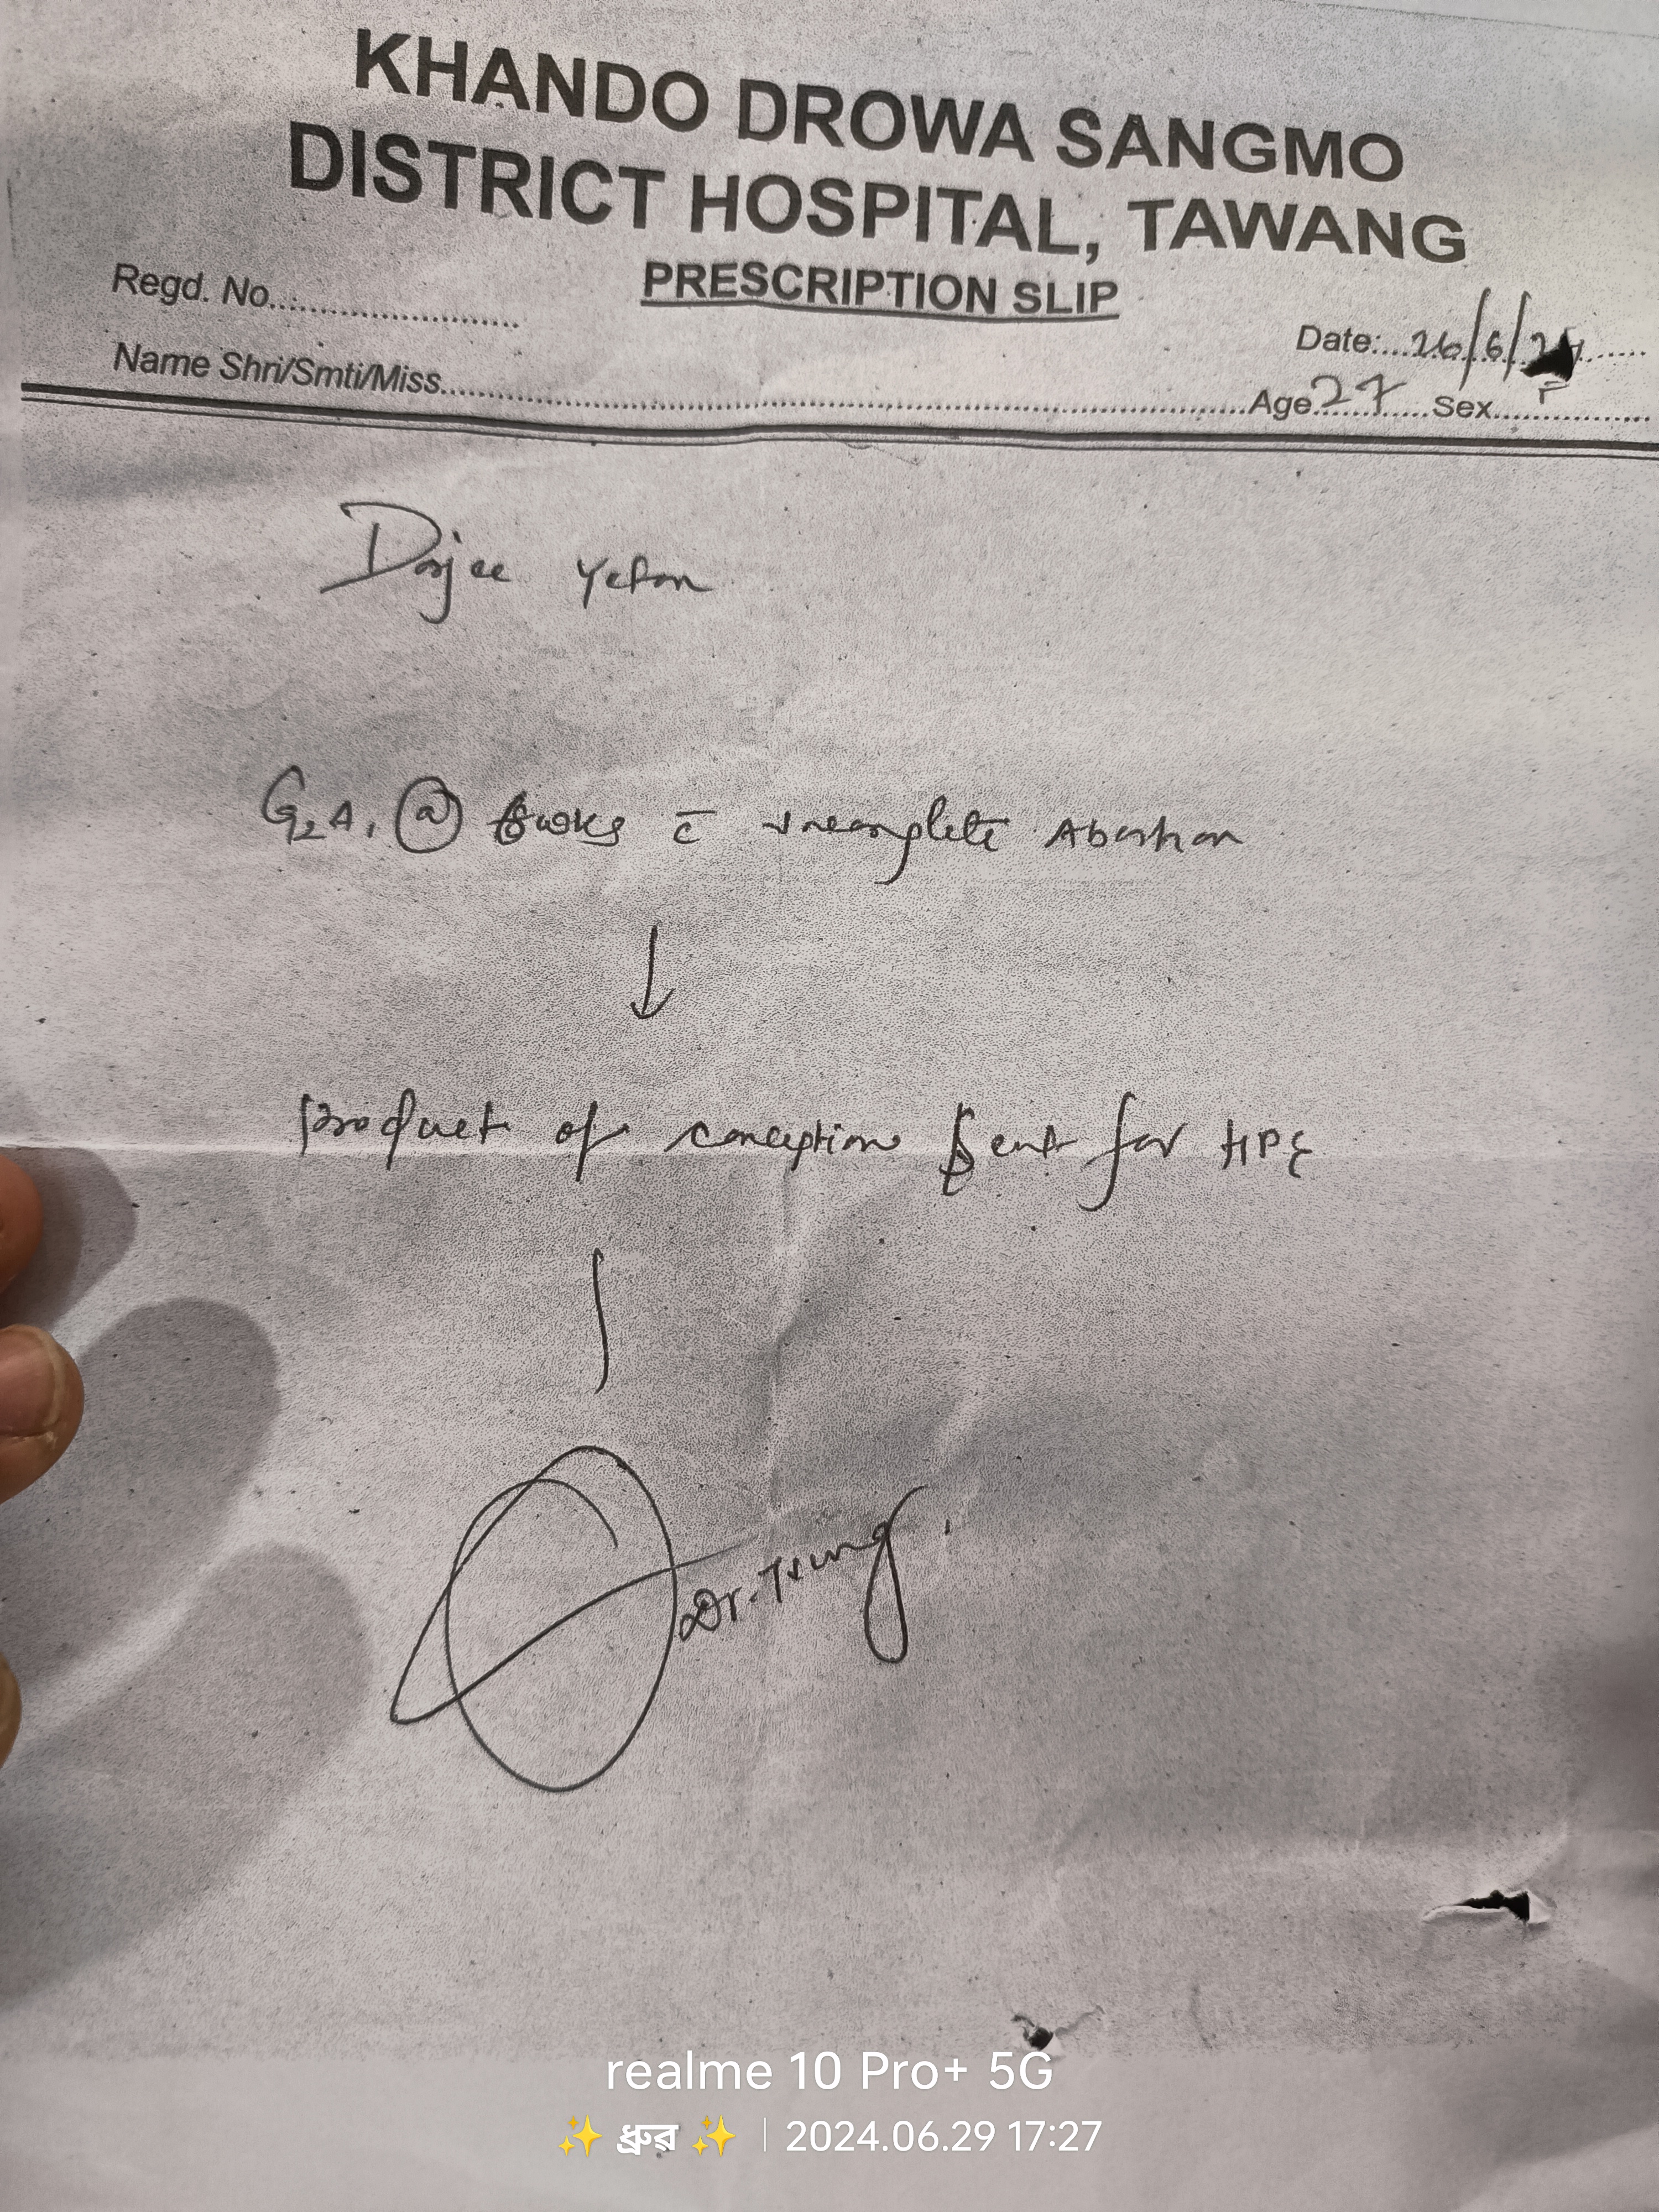 KHANDO DROWA SANGMO
DISTRICT HOSPITAL, TAWANG
PRESCRIPTION SLIP
Regd. No.......................... Date:...26/6/24......
Name Shri/Smti/Miss.......................................................Age 27 Sex F
Dorjee Yeton
G2A1 @ 6wks c̄ incomplete Abortion
↓
product of conception sent for HPE
Dr. Tsering
realme 10 Pro+ 5G
✨ ধ্রুব ✨ | 2024.06.29 17:27